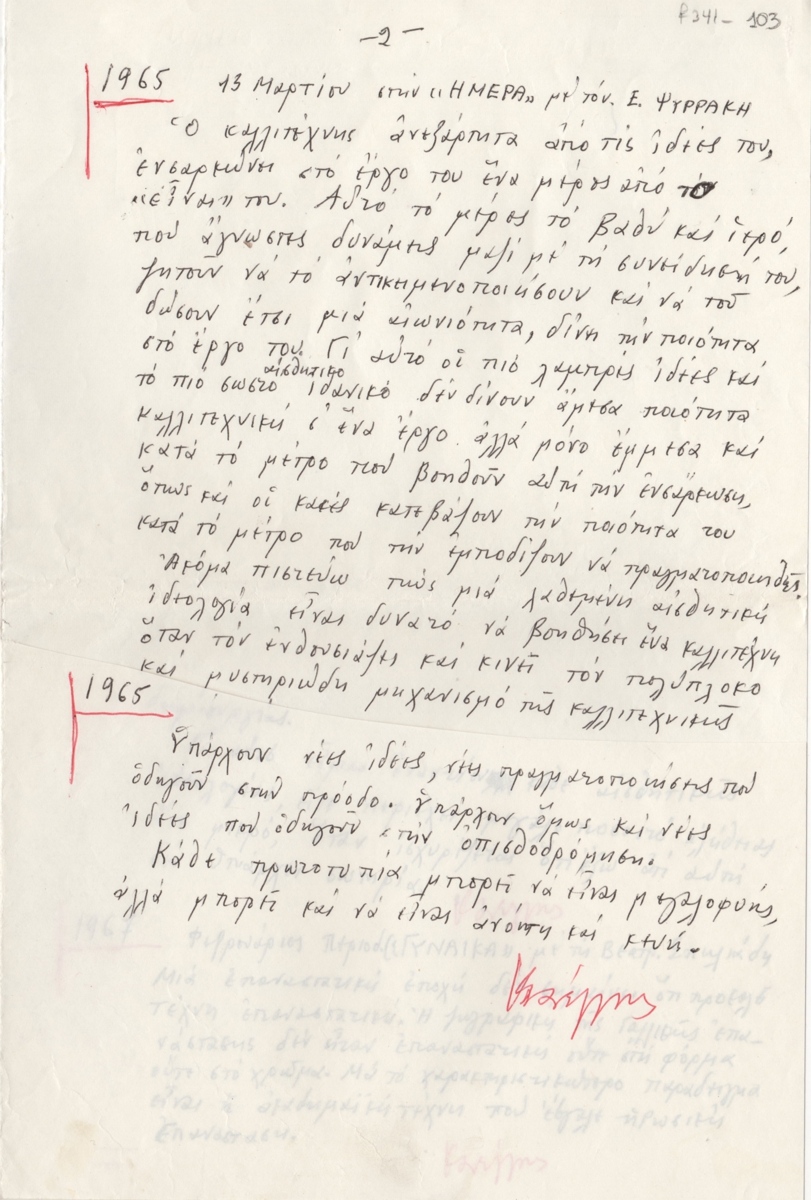 P341- 103
-2-
1965 13 Μαρτίου στήν «ΗΜΕΡΑ» μέ τόν. Ε. ΨΥΡΡΑΚΗ
Ὁ καλλιτέχνης ἀνεξάρτητα ἀπό τίς ἰδέες του,
ἐνσαρκώνει στό ἔργο του ἕνα μέρος ἀπό τό
«εἶναι» του. Αὐτό τό μέρος τό βαθύ καί ἱερό,
πού ἄγνωστες δυνάμεις μαζί μέ τή συνείδησή του,
ζητοῦν νά τό ἀντικειμενοποιήσουν καί νά τοῦ
δώσουν ἔτσι μιά αἰωνιότητα, δίνει τήν ποιότητα
στό ἔργο του. Γι' αὐτό οἱ πιό λαμπρές ἰδέες καί
τό πιό σωστό αἰσθητικό ἰδανικό δέν δίνουν ἄμεσα ποιότητα
καλλιτεχνική σ' ἕνα ἔργο ἀλλά μόνο ἔμμεσα καί
κατά τό μέτρο πού βοηθοῦν αὐτή τήν ἐνσάρκωση,
ὅπως καί οἱ κακές κατεβάζουν τήν ποιότητα του
κατά τό μέτρο πού τήν ἐμποδίζουν νά πραγματοποιηθεῖ.
Ἀκόμα πιστεύω πώς μιά λαθεμένη αἰσθητική
ἰδεολογία εἶναι δυνατό νά βοηθήσει ἕνα καλλιτέχνη
ὅταν τόν ἐνθουσιάζει καί κινεῖ τόν πολύπλοκο
καί μυστηριώδη μηχανισμό τῆς καλλιτεχνικῆς
1965
Ὑπάρχουν νέες ἰδέες, νέες πραγματοποιήσεις πού
ὁδηγοῦν στήν πρόοδο. Ὑπάρχουν ὅμως καί νέες
ἰδέες πού ὁδηγοῦν στήν ὀπισθοδρόμηση.
Κάθε πρωτοτυπία μπορεῖ νά εἶναι μεγαλοφυής,
ἀλλά μπορεῖ καί νά εἶναι ἀνόητη καί κενή.
Κανέλλης